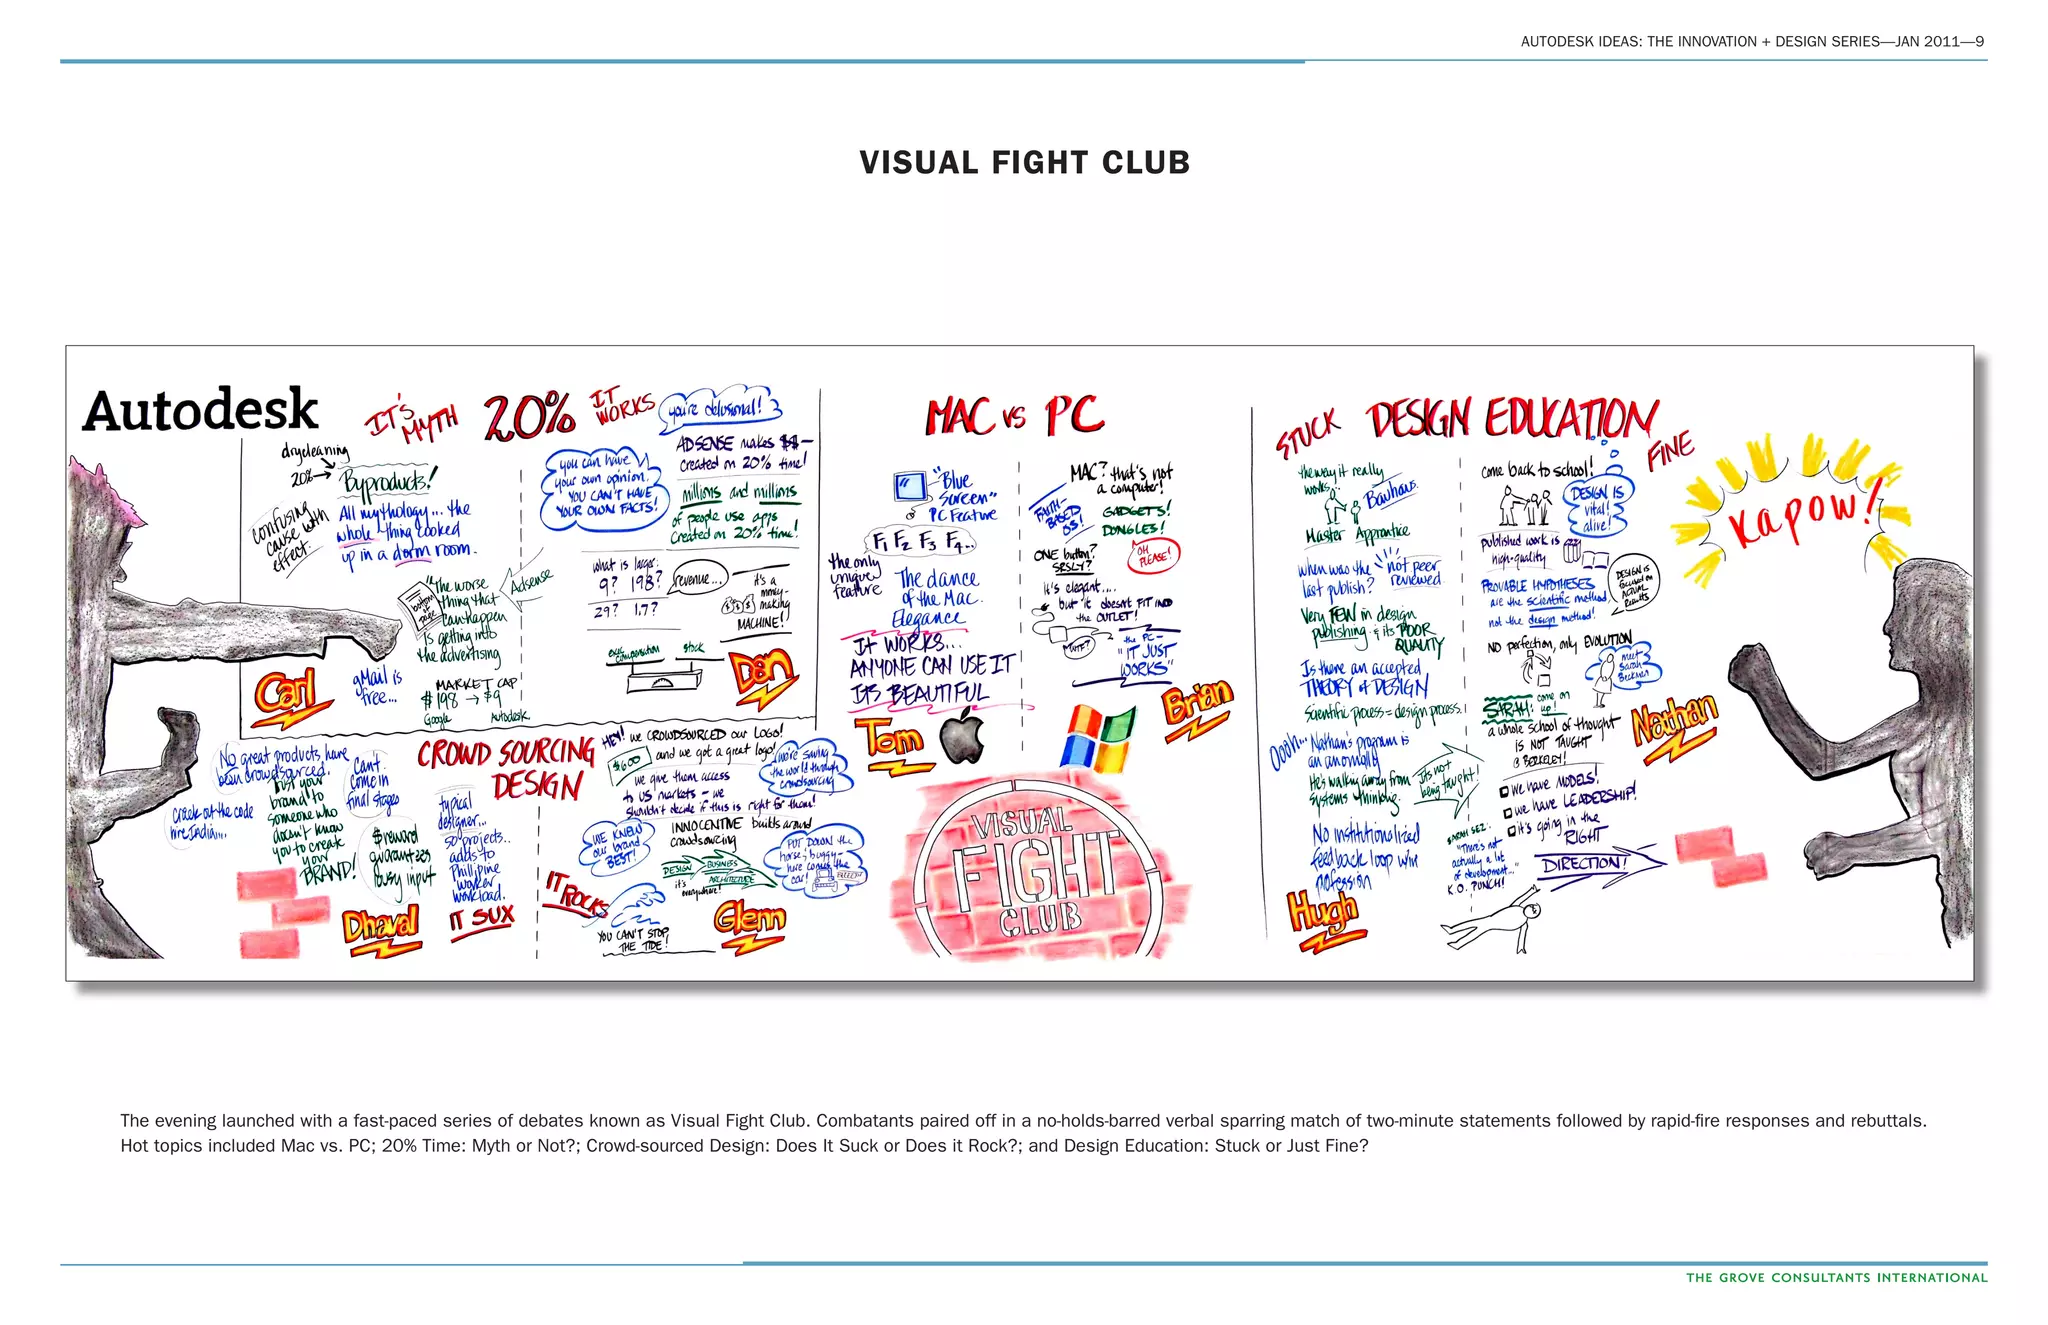 AUTODESK IDEAS: THE INNOVATION + DESIGN SERIES—JAN 2011—9
VISUAL FIGHT CLUB
Autodesk
IT'S
MYTH
20%
IT
WORKS
you're delusional!
drycleaning
20%→
Byproducts!
confusing
cause with
effect.
All mythology... the
whole thing cooked
up in a dorm room.
bottom
of
page
"The worse
thing that
can happen
is getting into
the advertising
Adsense
gMail is
free...
MARKET CAP
$198 → $9
Google Autodesk
Carl
you can have
your own opinion.
YOU CAN'T HAVE
YOUR OWN FACTS!
ADSENSE makes $$—
created on 20% time!
millions and millions
of people use apps
created on 20% time!
what is larger:
9? 198?
29? 17?
revenue...
$ $ $
it's a
money-
making
MACHINE!
exec
compensation
stock
Dan
CROWD SOURCING
DESIGN
No great products have
been crowdsourced.
Can't
come in
final stages
Trust your
brand to
someone who
doesn't know
you to create
your
BRAND!
Crack out the code
hire India...
$reward
guarantees
lousy input
typical
designer...
50 projects..
adds to
Phillipine
worker
workload.
Dhaval
IT SUX
HEY! we CROWDSOURCED our LOGO!
$600
and we got a great logo!
we give them access
to US markets — we
shouldn't decide if this is right for them!
we're saving
the world through
crowdsourcing
INNOCENTIVE builds around
crowdsourcing
WE KNEW
our brand
BEST!
DESIGN
BUSINESS
ARCHITECTURE
it's
everywhere!
PUT DOWN the
horse & buggy—
here comes the
car!
IT ROCKS
YOU CAN'T STOP
THE TIDE!
Glenn
MAC vs PC
"Blue
Screen"
PC Feature
F1 F2 F3 F4...
the only
unique
feature
The dance
of the Mac.
Elegance
IT WORKS...
ANYONE CAN USE IT
ITS BEAUTIFUL
Tom
MAC? that's not
a computer!
FAITH-
BASED
OS!
GADGETS!
DONGLES!
ONE button?
SRSLY?
OH,
PLEASE!
it's elegant....
but it doesn't FIT INTO
the OUTLET!
WTF?
the PC—
"IT JUST
WORKS"
Brian
VISUAL
FIGHT
CLUB
STUCK
DESIGN EDUCATION
FINE
the way it really
works:
Bauhaus.
Master Apprentice
when was the
last publish?
not peer
reviewed
Very FEW in design
publishing & its POOR
QUALITY
Is there an accepted
THEORY of DESIGN
Scientific process = design process.
Oooh... Nathan's program is
an anomally
He's walking away from
systems thinking.
Its not
being taught!
No institutionalized
feedback loop w/in
profession
Hugh
come back to school!
DESIGN IS
vital!
alive!
published work is
high-quality
PROVABLE HYPOTHESES
are the scientific method,
not the design method!
DESIGN IS
focused on
ACTUAL
RESULTS
NO perfection, only EVOLUTION
meet
Sarah
Beckman
SARAH: come on
up!
a whole school of thought
IS NOT TAUGHT
@ BERKELEY!
we have MODELS!
we have LEADERSHIP!
it's going in the
RIGHT
DIRECTION!
SARAH SEZ:
"There's not
actually a lot
of development..."
K.O. PUNCH!
Nathan
Kapow!
The evening launched with a fast-paced series of debates known as Visual Fight Club. Combatants paired off in a no-holds-barred verbal sparring match of two-minute statements followed by rapid-fire responses and rebuttals.
Hot topics included Mac vs. PC; 20% Time: Myth or Not?; Crowd-sourced Design: Does It Suck or Does it Rock?; and Design Education: Stuck or Just Fine?
THE GROVE CONSULTANTS INTERNATIONAL